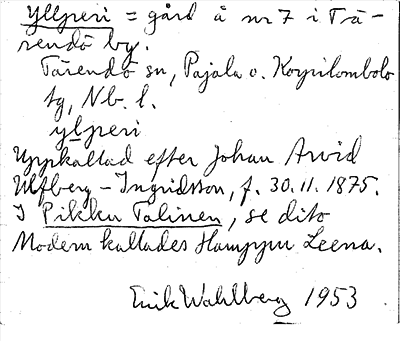 Yllperi = gård å nr 7 i Tä-
rendö by.
Tärendö sn, Pajala o. Korpilombolo
tg, Nb. l.
ylperi
Uppkallad efter Johan Arvid
Ulfberg - Ingridsson, f. 30.11.1875.
I Pikku Talinen, se dito
Modern kallades Hamppu Leena.
Erik Wahlberg 1953